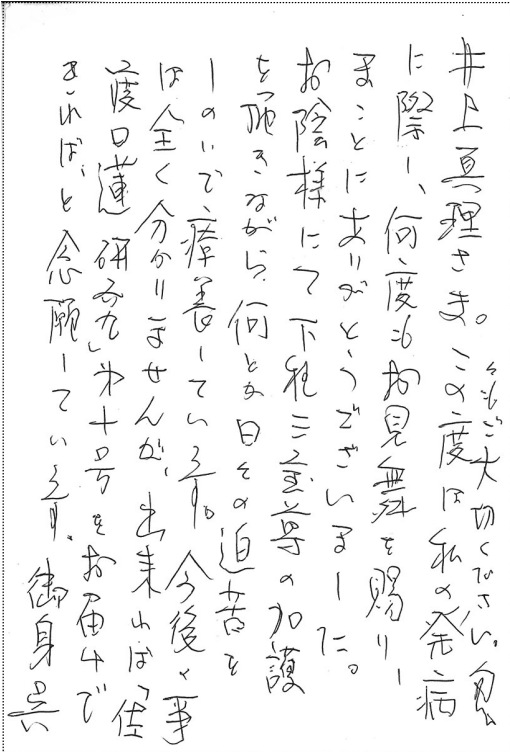 井上真理さま。この度は私の発病
に際し、何度もお見舞を賜り、
まことにありがとうございました。
お陰様にて下種三宝尊の加護
を頂きながら、何とか日々の迫苦を
しのいで、療養しています。今後の事
は全く分かりませんが、出来れば「佳
渡日蓮研究」第十号をお届けで
きれば、と念願しています。御身呉
々もご大切ください。